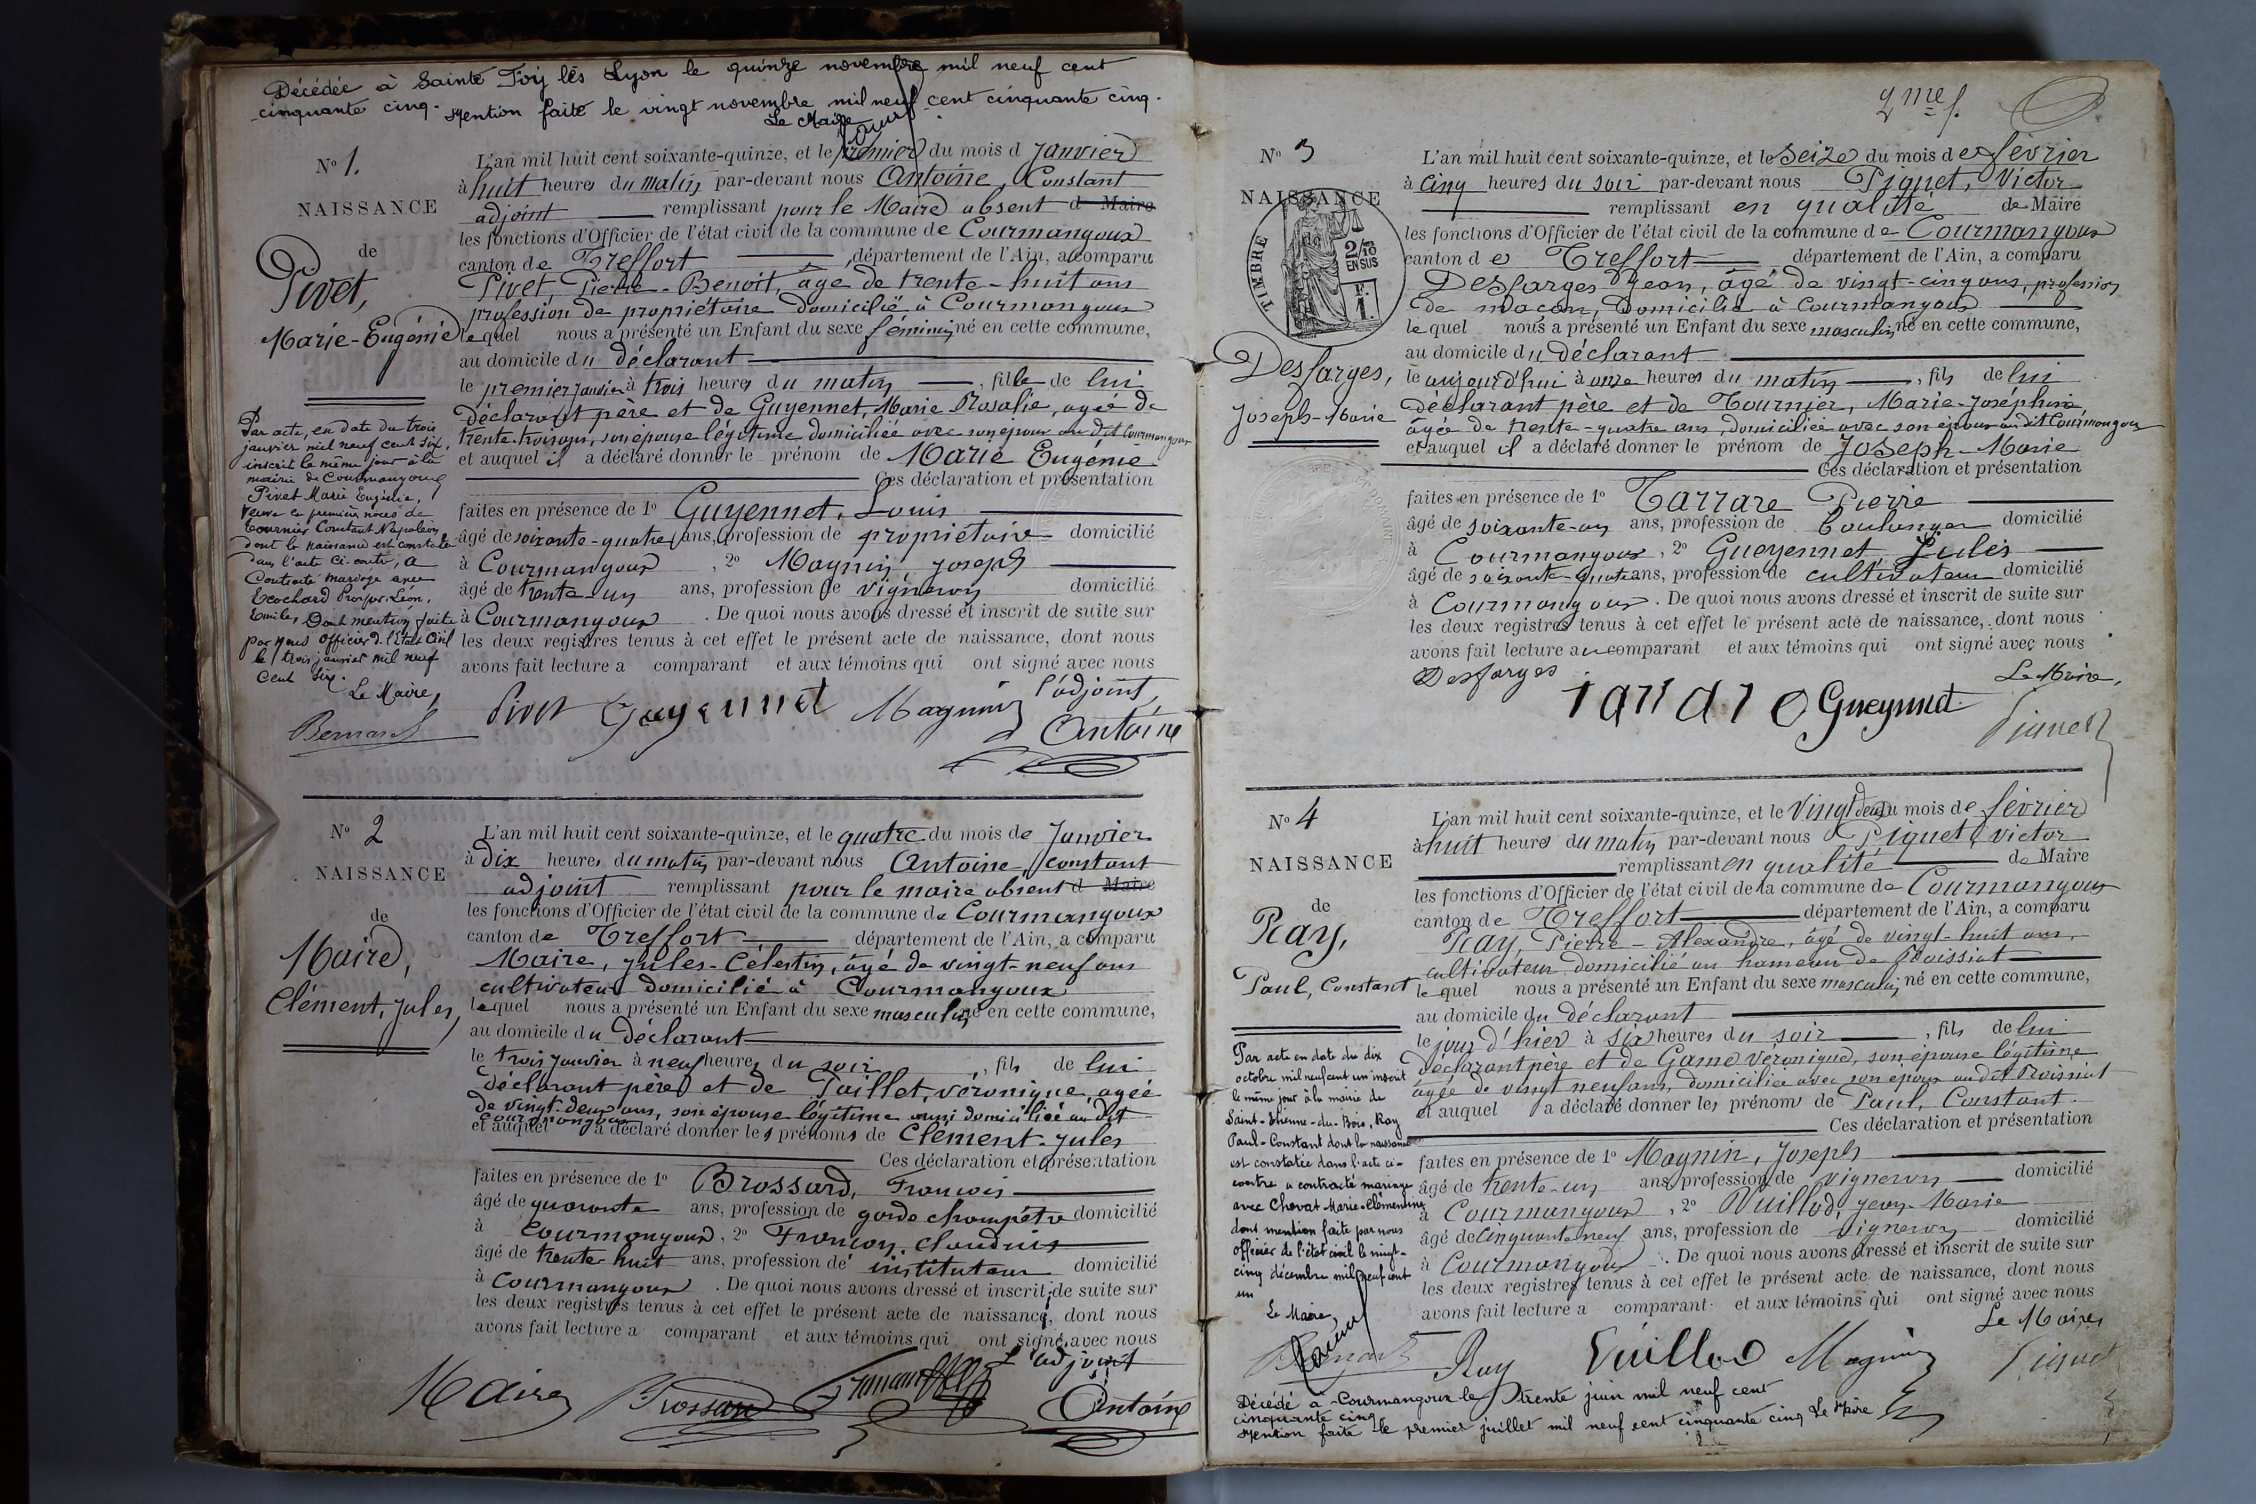 Décédée à Sainte Foy lès Lyon le quinze novembre mil neuf cent
cinquante cinq. Mention faite le vingt novembre mil neuf cent cinquante cinq.
Le Maire
N° 1.
NAISSANCE
de
Pivet,
Marie-Eugénie
L'an mil huit cent soixante-quinze, et le premier du mois d Janvier
à huit heures du matin par-devant nous Antoine, Constant
adjoint remplissant pour le Maire absent d Maire
les fonctions d'Officier de l'état civil de la commune de Courmangoux
canton de Treffort, département de l'Ain, a comparu
Pivet Pierre-Benoit, âgé de trente-huit ans
profession de propriétaire domicilié à Courmangoux
lequel nous a présenté un Enfant du sexe féminin, né en cette commune,
au domicile du déclarant
le premier janvier à trois heures du matin, fille de lui
déclarant père et de Guyennet, Marie Rosalie, agée de
trente-trois ans, son épouse légitime domiciliée avec son epoux au dit Courmangoux
et auquel il a déclaré donner le prénom de Marie Eugenie
Ces déclaration et présentation
faites en présence de 1° Guyennet, Louis
âgé de soixante-quatre ans, profession de propriétaire domicilié
à Courmangoux, 2° Magnin Joseph
âgé de trente-un ans, profession de vigneron domicilié
à Courmangoux. De quoi nous avons dressé et inscrit de suite sur
les deux registres tenus à cet effet le présent acte de naissance, dont nous
avons fait lecture a comparant et aux témoins qui ont signé avec nous
Pivet Guyennet Magnin l'adjoint,
Antoine
Par acte, en date du trois
janvier mil neuf cent six,
inscrit le même jour à la
mairie de Courmangoux
Pivet Marie Eugénie,
veuve en premières noces de
Tournier Constant Napoléon
dont la naissance est constatée
dans l'acte ci-contre, a
Contracté mariage avec
Ecochard Prosper-Léon,
Emile, Dont mention faite
par nous Officier de l'Etat Civil
le trois janvier mil neuf
cent six.
Le Maire,
Bernard
N° 2
NAISSANCE
de
Maire,
Clément, Jules,
L'an mil huit cent soixante-quinze, et le quatre du mois de Janvier
à dix heures du matin par-devant nous Antoine, Constant
adjoint remplissant pour le maire absent d Maire
les fonctions d'Officier de l'état civil de la commune de Courmangoux
canton de Treffort département de l'Ain, a comparu
Maire, Jules-Célestin, âgé de vingt-neuf ans
cultivateur domicilié à Courmangoux
lequel nous a présenté un Enfant du sexe masculin né en cette commune,
au domicile du déclarant
le trois janvier à neuf heures du soir, fils de lui
déclarant père et de Paillet, véronique, agée
de vingt-deux ans, son épouse légitime aussi domiciliée au dit
Courmangoux
et auquel a déclaré donner les prénoms de Clément-Jules
Ces déclaration et présentation
faites en présence de 1° Brossard, François
âgé de quarante ans, profession de garde champêtre domicilié
à Courmangoux, 2° Françon, Claudius
âgé de trente huit ans, profession de instituteur domicilié
à Courmangoux. De quoi nous avons dressé et inscrit de suite sur
les deux registres tenus à cet effet le présent acte de naissance, dont nous
avons fait lecture a comparant et aux témoins qui ont signé avec nous
L'adjoint
Maire Brossard Françon Antoine
2me f.
N° 3
NAISSANCE
de
TIMBRE
2/10
EN SUS
F.
1.
Desfarges,
Joseph-Marie
L'an mil huit cent soixante-quinze, et le Seize du mois de février
à cinq heures du soir par-devant nous Piquet, Victor
remplissant en qualité de Maire
les fonctions d'Officier de l'état civil de la commune de Courmangoux
canton de Treffort département de l'Ain, a comparu
Desfarges Jean, âgé de vingt-cinq ans, profession
de maçon, Domicilié à Courmangoux
lequel nous a présenté un Enfant du sexe masculin, né en cette commune,
au domicile du déclarant
le aujourd'hui à onze heures du matin, fils de lui
déclarant père et de Tournier, Marie-Joséphine
âgée de trente-quatre ans, domiciliée avec son époux au dit Courmangoux
et auquel il a déclaré donner le prénom de Joseph-Marie
Ces déclaration et présentation
faites en présence de 1° Tarrare Pierre
âgé de soixante-un ans, profession de boulanger domicilié
à Courmangoux, 2° Gueyennet Jules
âgé de soixante-quatre ans, profession de cultivateur domicilié
à Courmangoux. De quoi nous avons dressé et inscrit de suite sur
les deux registres tenus à cet effet le présent acte de naissance, dont nous
avons fait lecture au comparant et aux témoins qui ont signé avec nous
Desfarges Le Maire,
Tarrare Gueynnet
Piquet
N° 4
NAISSANCE
de
Ray,
Paul, Constant
L'an mil huit cent soixante-quinze, et le Vingt deux du mois de février
à huit heures du matin par-devant nous Piquet, Victor
remplissant en qualité de Maire
les fonctions d'Officier de l'état civil de la commune de Courmangoux
canton de Treffort département de l'Ain, a comparu
Ray, Pierre-Alexandre, âgé de vingt-huit ans,
cultivateur domicilié au hameau de Roissiat
lequel nous a présenté un Enfant du sexe masculin, né en cette commune,
au domicile du déclarant
le jour d'hier à six heures du soir, fils de lui
déclarant père et de Game Véronique, son épouse légitime
âgée de vingt neuf ans, domiciliée avec son époux au dit Roissiat
et auquel a déclaré donner les prénoms de Paul, Constant.
Ces déclaration et présentation
faites en présence de 1° Magnin, Joseph
âgé de trente-un ans, profession de vigneron domicilié
à Courmangoux, 2° Vuillod, Jean-Marie
âgé de cinquante neuf ans, profession de vigneron domicilié
à Courmangoux. De quoi nous avons dressé et inscrit de suite sur
les deux registres tenus à cet effet le présent acte de naissance, dont nous
avons fait lecture a comparant et aux témoins qui ont signé avec nous
Le Maire
Ray Vuillod Magnin Piquet
Par acte en date du dix
octobre mil neuf cent un inscrit
le même jour à la mairie de
Saint-Etienne-du-Bois, Ray
Paul-Constant dont la naissance
est constatée dans l'acte ci-
contre a contracté mariage
avec Chevat Marie-Clémentine
dont mention faite par nous
Officier de l'état civil le vingt-
cinq décembre mil neuf cent
un
Le Maire,
Décédé à Courmangoux le trente juin mil neuf cent
cinquante cinq
Mention faite le premier juillet mil neuf cent cinquante cinq Le Maire